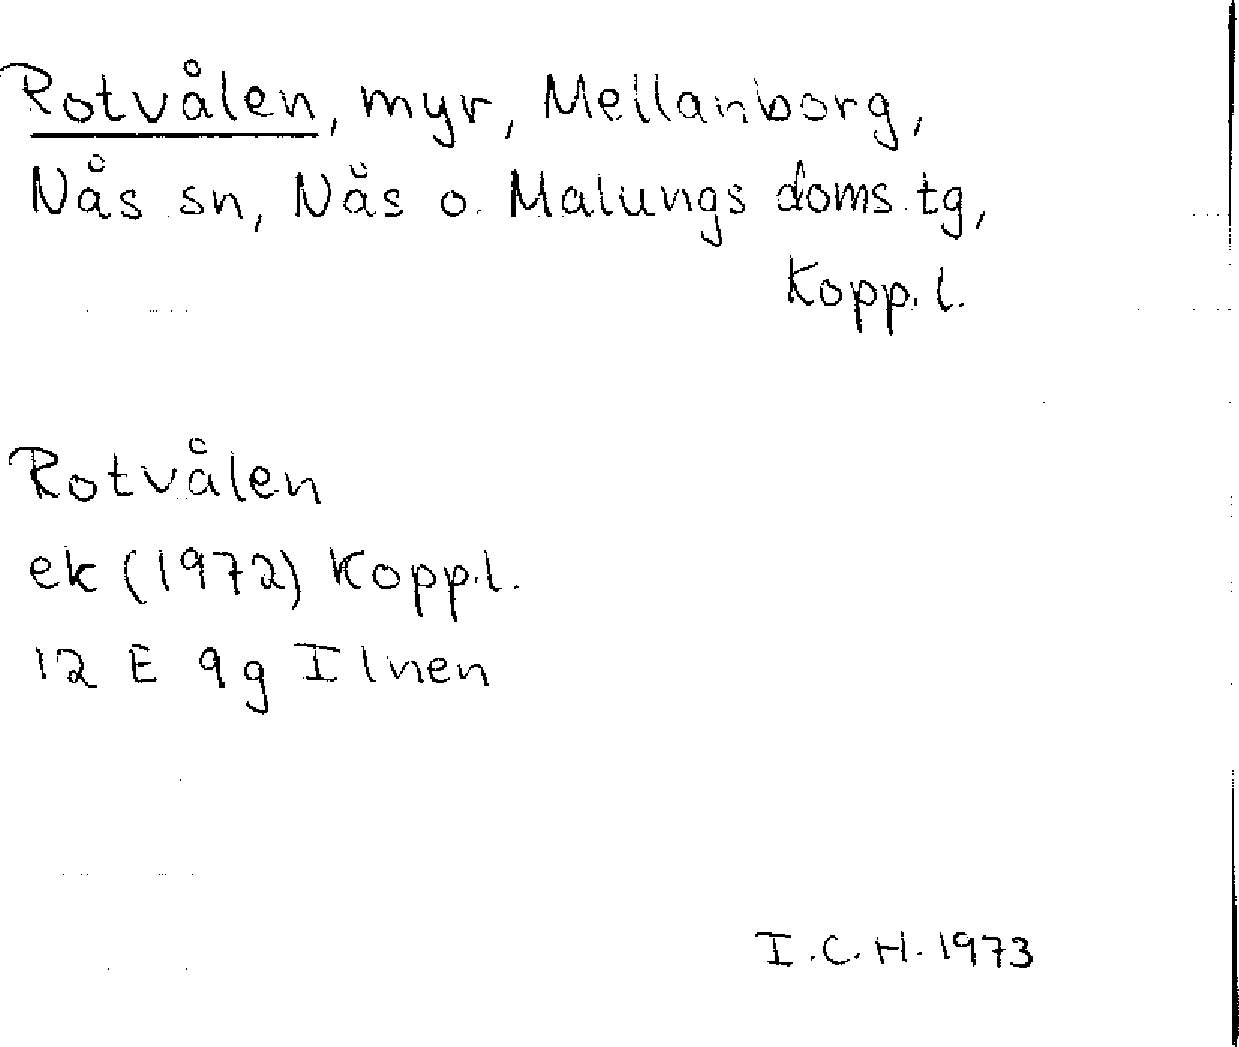 Rotvålen, myr, Mellanborg,
Nås sn, Nås o. Malungs doms.tg,
Kopp. l.
Rotvålen
ek (1972) Kopp.l.
12 E 9g Ilnen
I.C.H. 1973